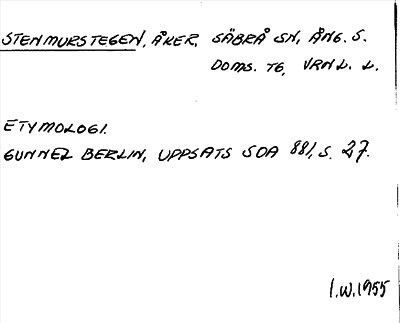 STENMURSTEGEN, ÅKER, SÄBRÅ SN, ÅNG. S.
DOMS. TG, VRNL. L.
ETYMOLOGI.
GUNNEL BERLIN, UPPSATS SOA 881, S. 27.
I.W.1955